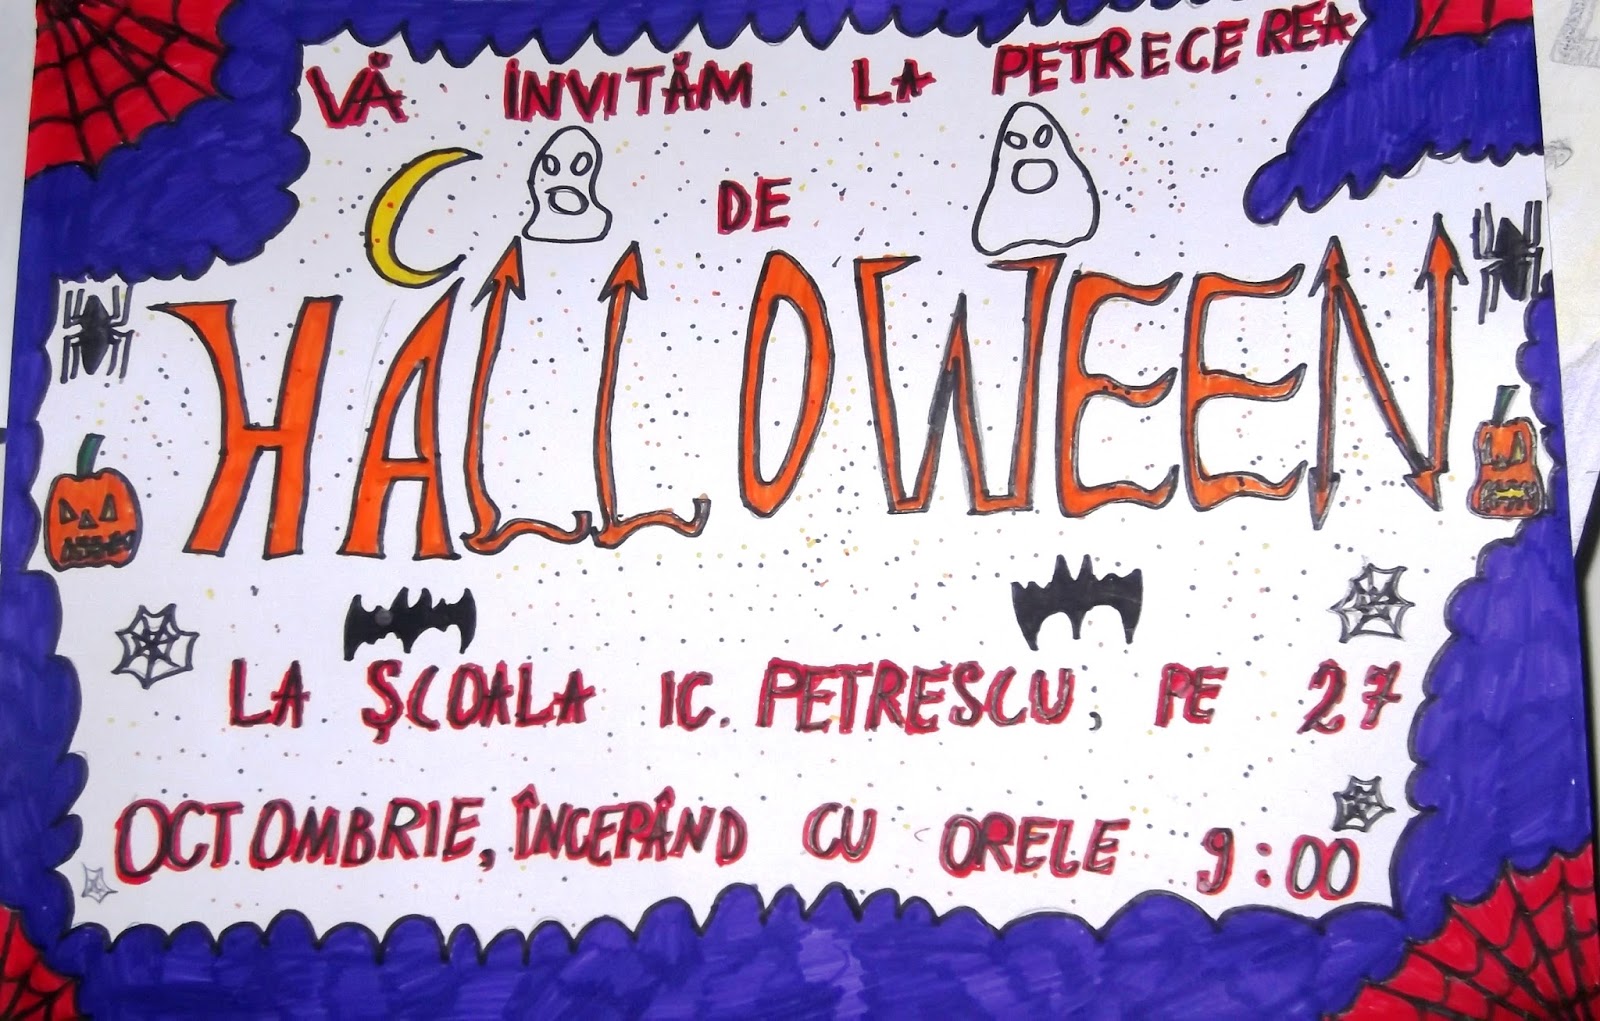 VĂ INVITĂM LA PETRECEREA
DE
HALLOWEEN
LA ŞCOALA IC. PETRESCU, PE 27
OCTOMBRIE, ÎNCEPÂND CU ORELE 9:00